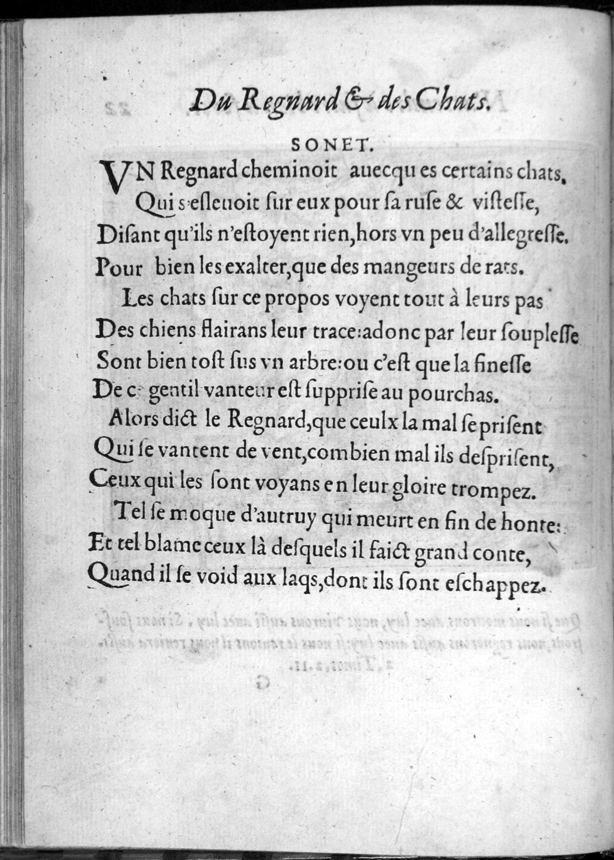 Du Regnard & des Chats.
SONET.
VN Regnard cheminoit auecqu es certains chats,
Qui s'esleuoit ſur eux pour ſa ruſe & viſteſſe,
Diſant qu'ils n'eſtoyent rien, hors vn peu d'allegreſſe.
Pour bien les exalter, que des mangeurs de rats.
Les chats ſur ce propos voyent tout à leurs pas
Des chiens flairans leur trace: adonc par leur ſoupleſſe
Sont bien toſt ſus vn arbre: ou c'eſt que la fineſſe
De ce gentil vanteur eſt ſuppriſe au pourchas.
Alors dict le Regnard, que ceulx la mal ſe priſent
Qui ſe vantent de vent, combien mal ils deſpriſent,
Ceux qui les ſont voyans en leur gloire trompez.
Tel ſe moque d'autruy qui meurt en fin de honte:
Et tel blame ceux là deſquels il faict grand conte,
Quand il ſe void aux laqs, dont ils ſont eſchappez.
22
Que ſi nous mourons auec luy, nous viurons auſſi auec luy. Si nous ſouf-
frons, nous regnerons auſſi auec luy: ſi nous le renions il nous reniera auſſi.
2. Timot. 2. 11.
G